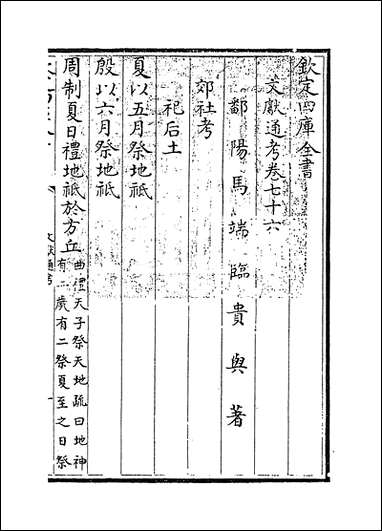 欽定四庫全書
文獻通考卷七十六
鄱陽馬端臨貴與著
郊社考
祀后土
夏以五月祭地祇
殷以六月祭地祇
周制夏日禮地祇於方丘曲禮天子祭天地疏曰地神
有二歲有二祭夏至之日祭
文獻通考